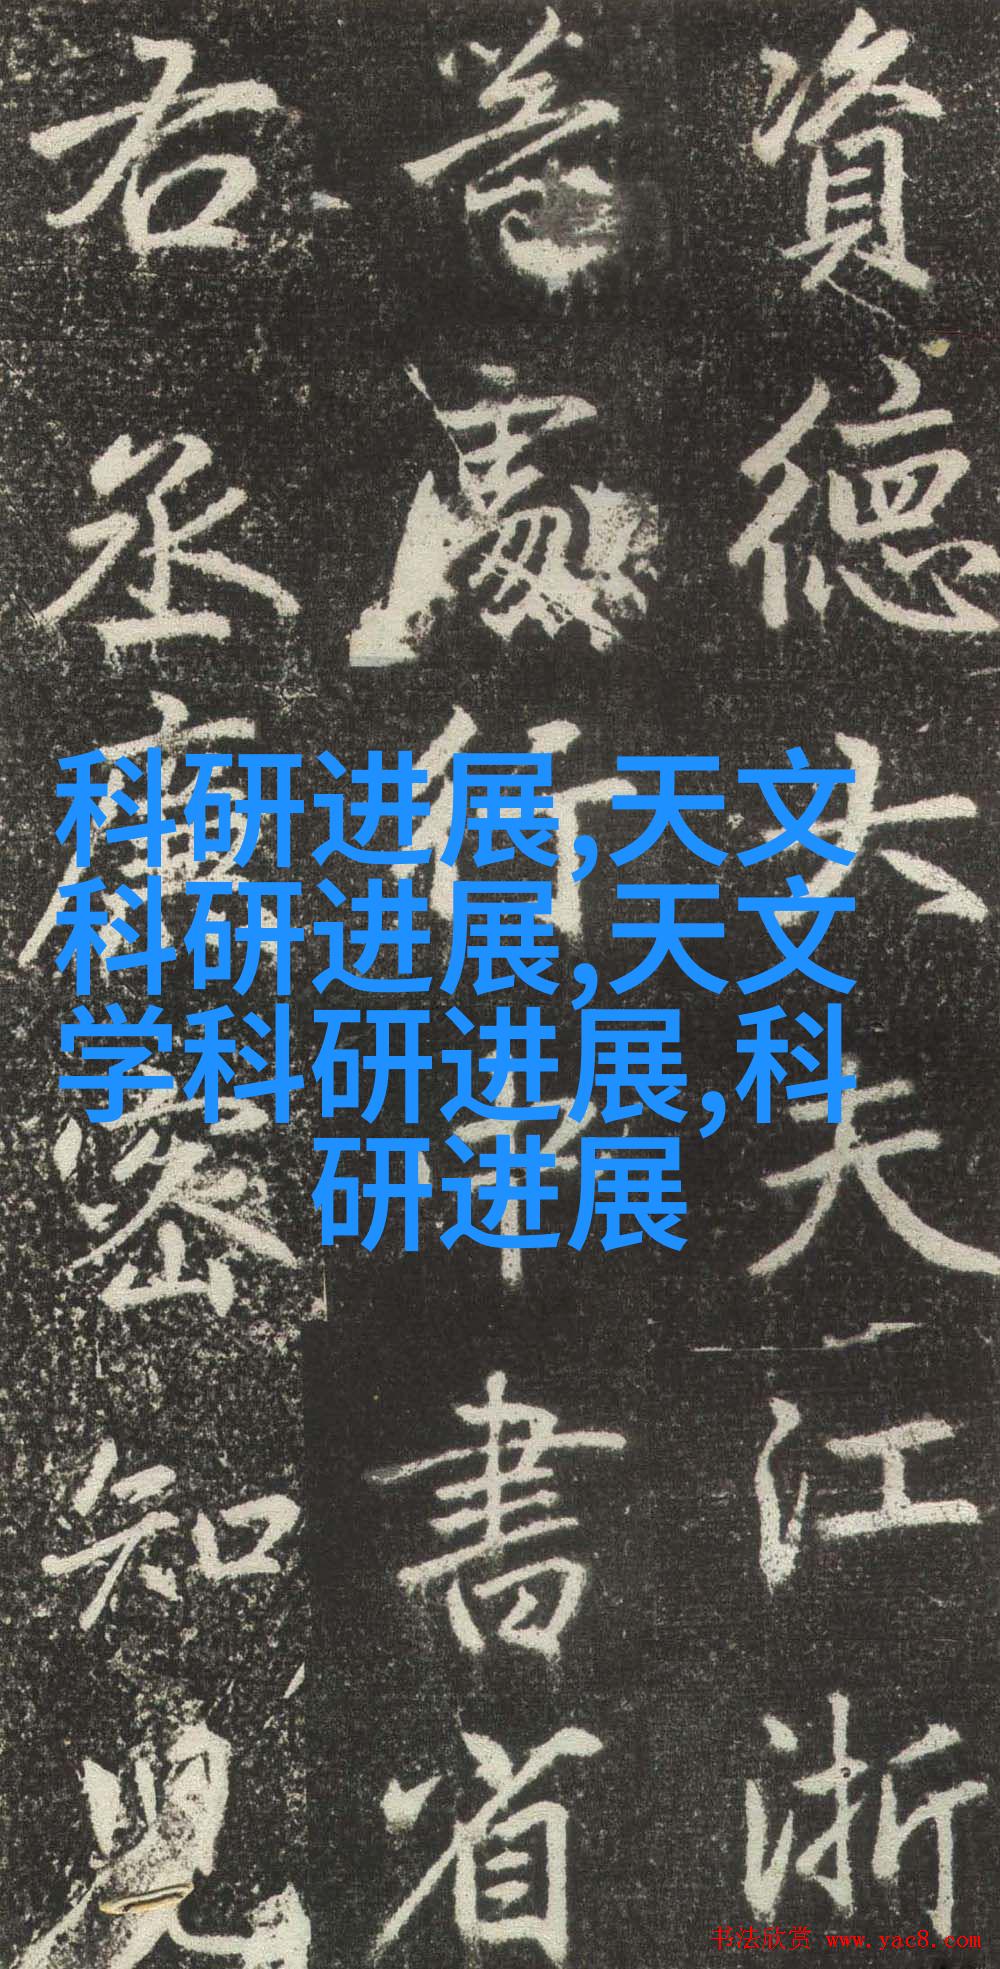 資德大夫江浙
等處行中書省
右丞唐
知
科研进展,天文
科研进展,天文
学科研进展,科
研进展
书法欣赏 www.yac8.com